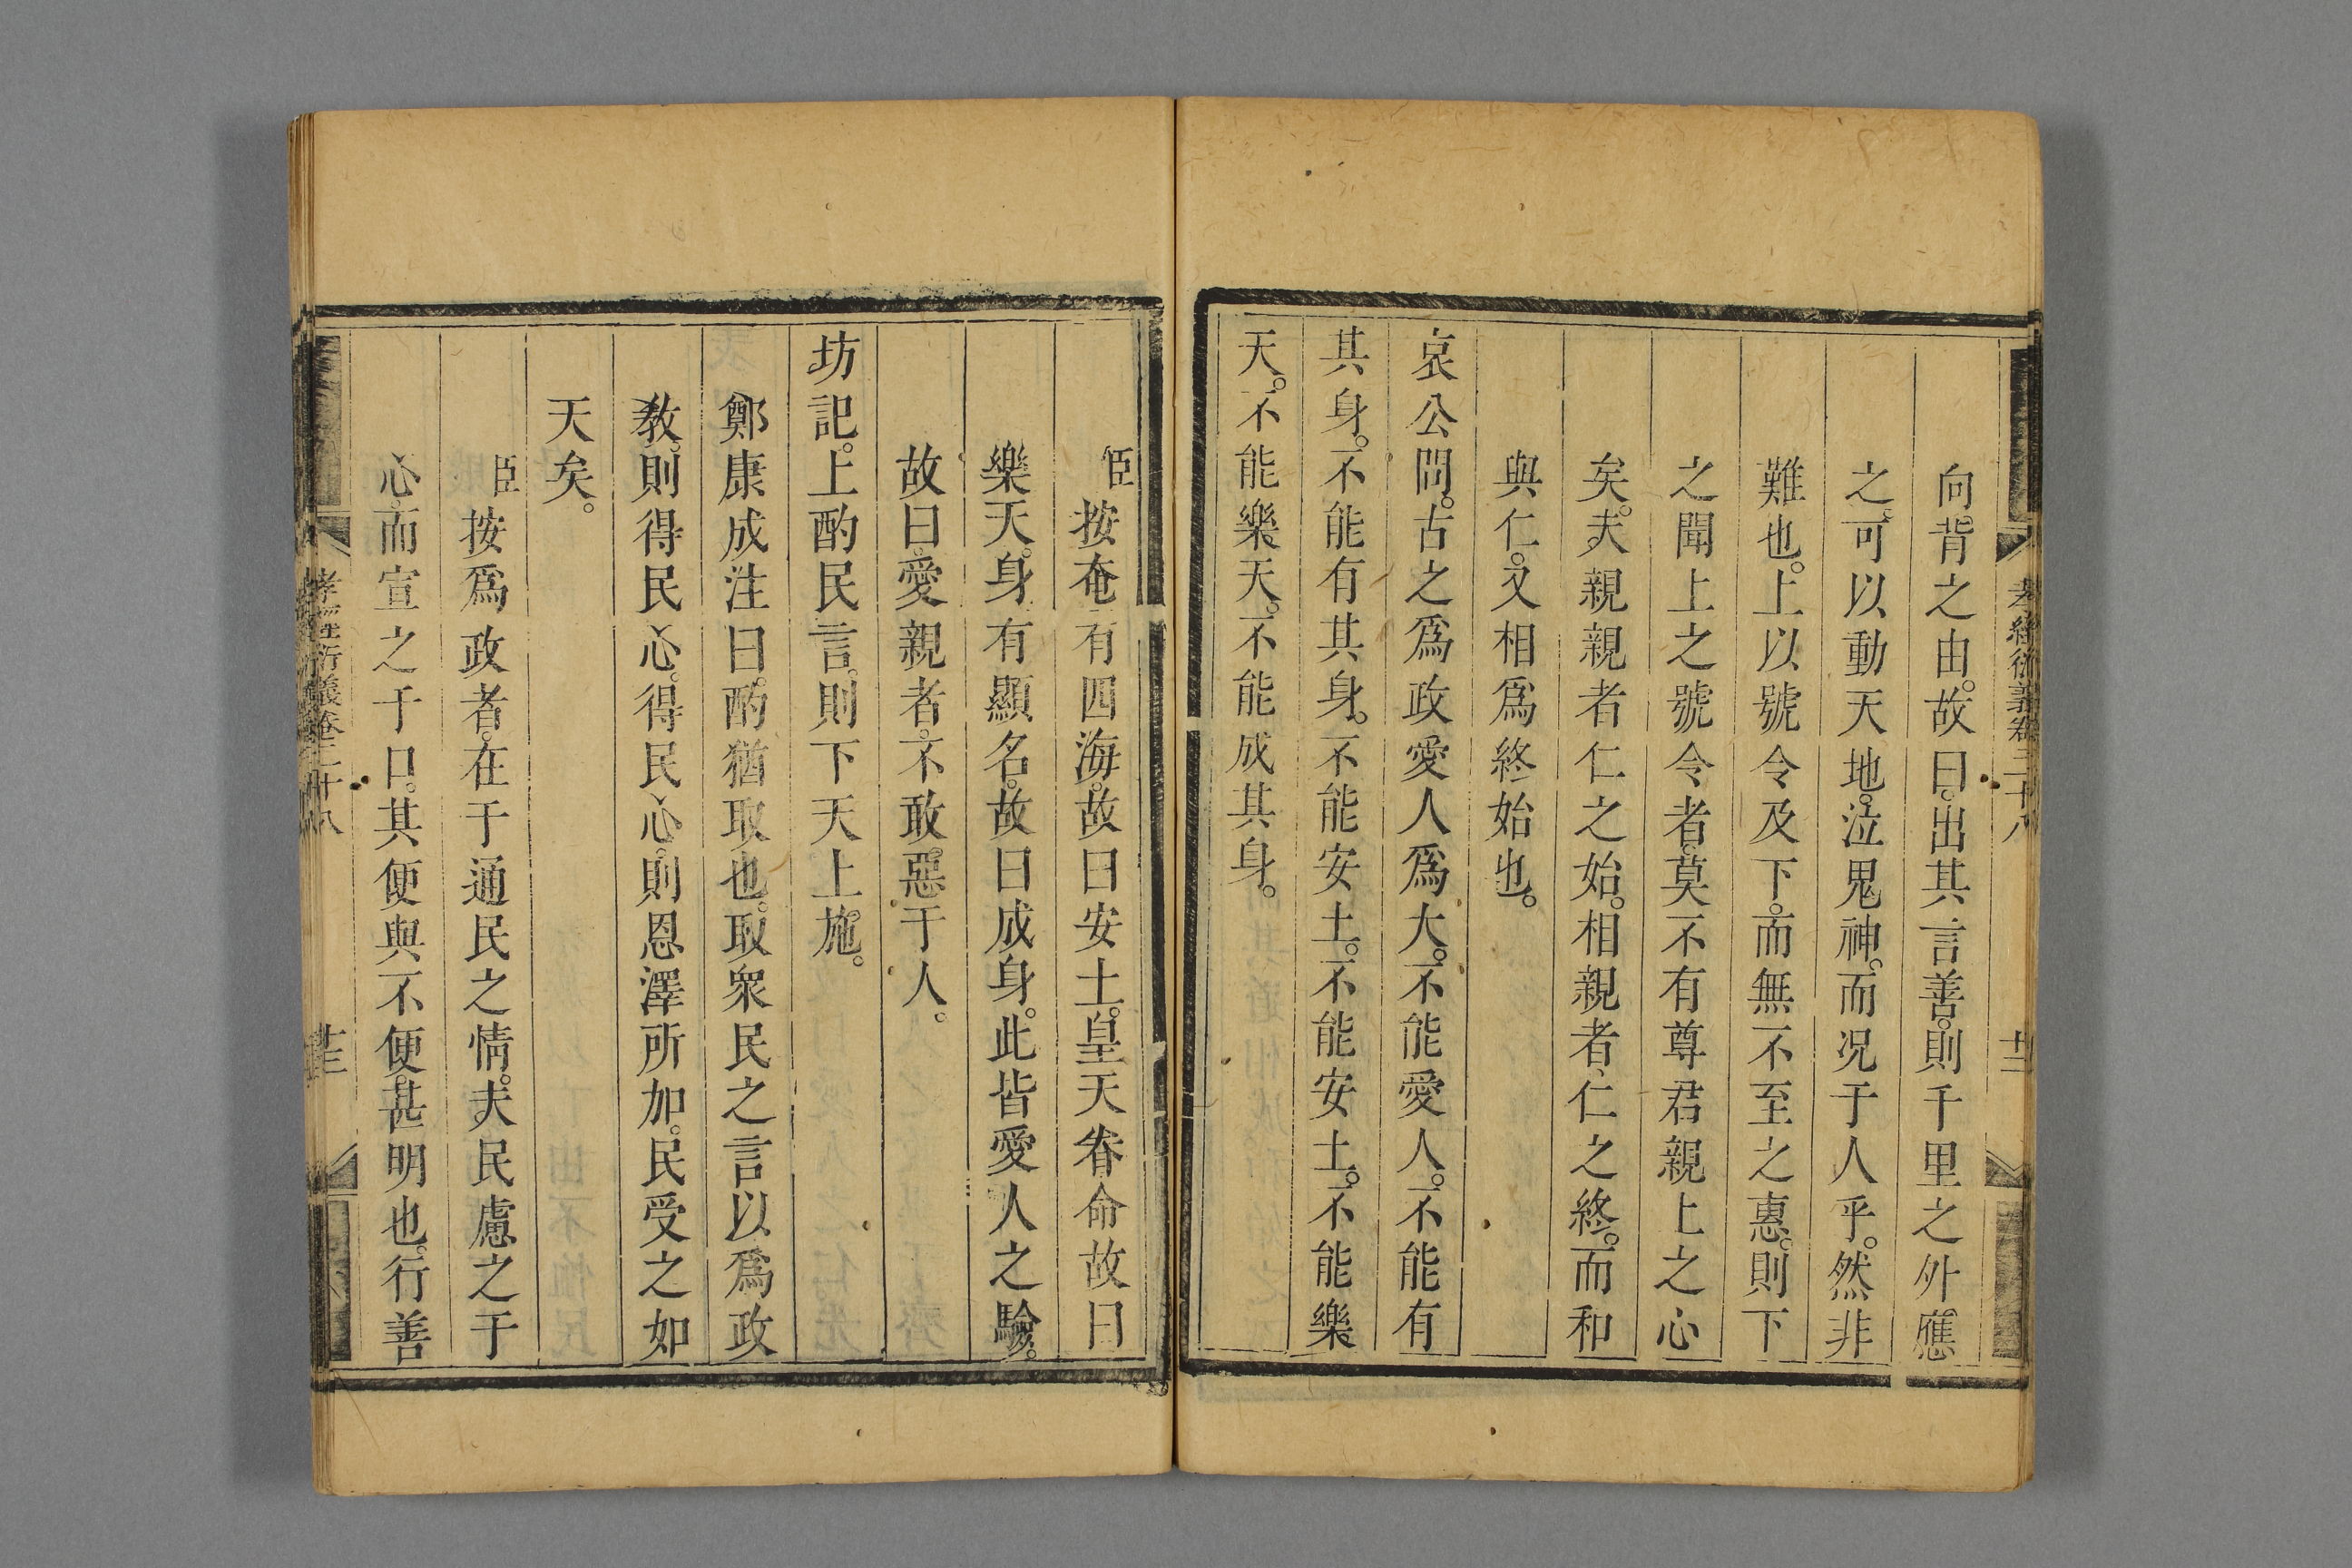 孝經衍義卷二十八
向背之由。故曰。出其言善。則千里之外應
之。可以動天地。泣鬼神。而况于人乎。然非
難也。上以號令及下。而無不至之惠。則下
之聞上之號令者。莫不有尊君親上之心
矣。夫親親者仁之始。相親者、仁之終。而和
與仁。又相爲終始也。
哀公問。古之爲政愛人爲大。不能愛人。不能有
其身。不能有其身。不能安土。不能安土。不能樂
天。不能樂天。不能成其身。
臣按奄有四海。故曰安土。皇天眷命故曰
樂天。身有顯名。故曰成身。此皆愛人之驗。
故曰。愛親者。不敢惡于人。
坊記。上酌民言。則下天上施。
鄭康成注曰。酌猶取也。取衆民之言以爲政
教。則得民心。得民心。則恩澤所加。民受之如
天矣。
臣按爲政者。在于通民之情。夫民慮之于
心。而宣之于口。其便與不便。甚明也。行善
孝經衍義卷二十八